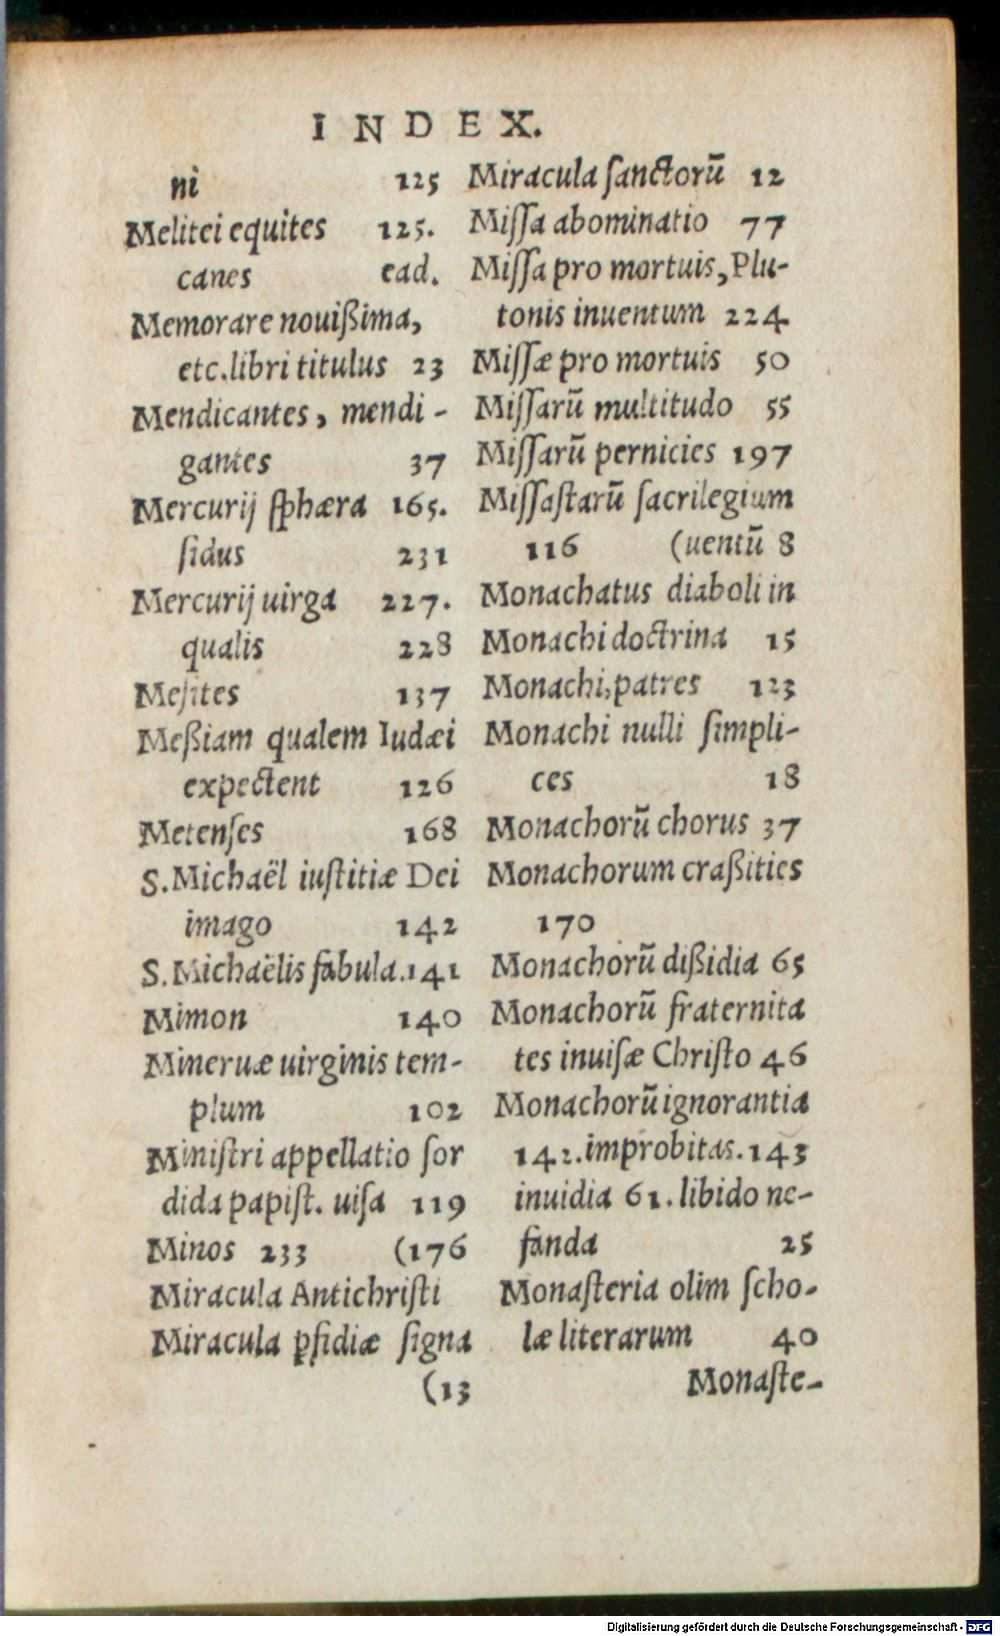 INDEX.
ni 125
Melitei equites 125.
canes ead.
Memorare nouißima,
etc. libri titulus 23
Mendicantes, mendi-
gantes 37
Mercurij sphæra 165.
ſidus 231
Mercurij uirga 227.
qualis 228
Meſites 137
Meßiam qualem Iudæi
expectent 126
Metenſes 168
S. Michaël iuſtitiæ Dei
imago 142
S. Michaëlis fabula. 141
Mimon 140
Mineruæ uirginis tem-
plum 102
Miniſtri appellatio ſor
dida papiſt. uiſa 119
Minos 233 (176
Miracula Antichriſti
Miracula ꝑfidiæ ſigna
(13
Miracula ſanctorū 12
Miſſa abominatio 77
Miſſa pro mortuis, Plu-
tonis inuentum 224
Miſſæ pro mortuis 50
Miſſarū multitudo 55
Miſſarū pernicies 197
Miſſaſtarū ſacrilegium
116 (uentū 8
Monachatus diaboli in
Monachi doctrina 15
Monachi, patres 123
Monachi nulli ſimpli-
ces 18
Monachorū chorus 37
Monachorum craßities
170
Monachorū dißidia 65
Monachorū fraternita
tes inuiſæ Chriſto 46
Monachorū ignorantia
142. improbitas. 143
inuidia 61. libido ne-
fanda 25
Monaſteria olim ſcho-
læ literarum 40
Monaſte-
Digitalisierung gefördert durch die Deutsche Forschungsgemeinschaft - DFG